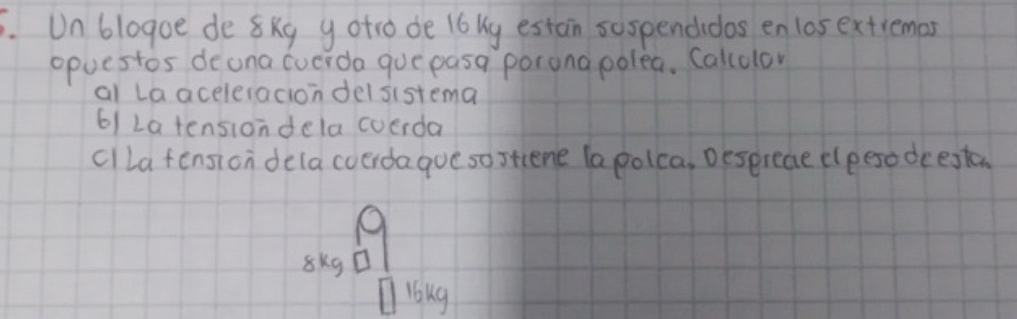 5. Un bloque de 8 Kg y otro de 16 Kg están suspendidos en los extremos
opuestos de una cuerda que pasa por una polea. Calcular
a) La aceleración del sistema
b) La tensión de la cuerda
c) La tensión de la cuerda que sostiene la polea. Desprecie el peso de esta.
8kg
16kg